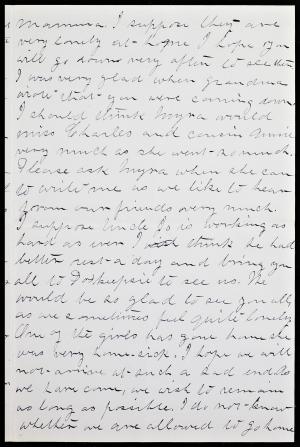 Mamma. I suppose they are
very lonely at home I hope you
will go down very often to see them
I was very glad when grandma
wrote that you were coming down
I should think Myra would
miss Charles and cousin
very much as she went so much.
Please ask Myra when she can
to write me as we like to hear
from our friends very much.
I suppose Uncle Jo is working as
hard as ever I think he had
better rest a day and bring you
all to Po'keepsie to see us. We
would be so glad to see you all,
as we sometimes feel quite lonely
One of the girls has gone home she
was very home-sick. I hope we will
not arrive at such a sad end. As
we have come, we wish to remain
as long as possible. I do not know
whether we are allowed to go home